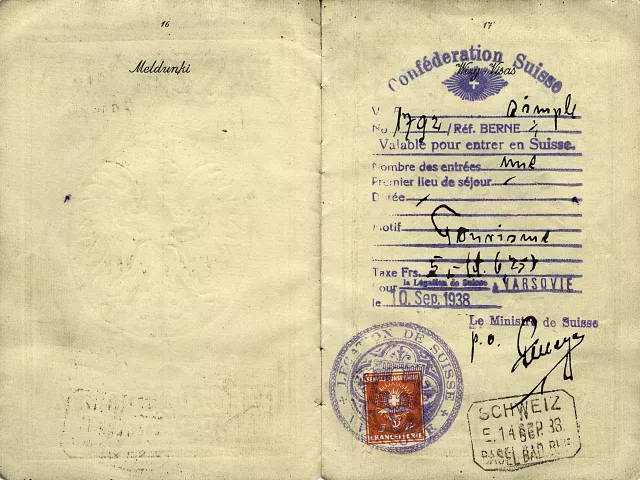 16
Meldunki
17
Confédération Suisse
Wizy-Visas
V simple
No. 1792 /Réf. BERNE
Valable pour entrer en Suisse.
Nombre des entrées une
Premier lieu de séjour
Durée
Motif
Tourisme
Taxe Frs. 5.-
Pour la Légation de Suisse à VARSOVIE
le 10. Sep. 1938
Le Ministre de Suisse
p.o.
LEGATION DE SUISSE
CHANCELLERIE
SCHWEIZ
5 14 SEP. 38
BASEL BAD